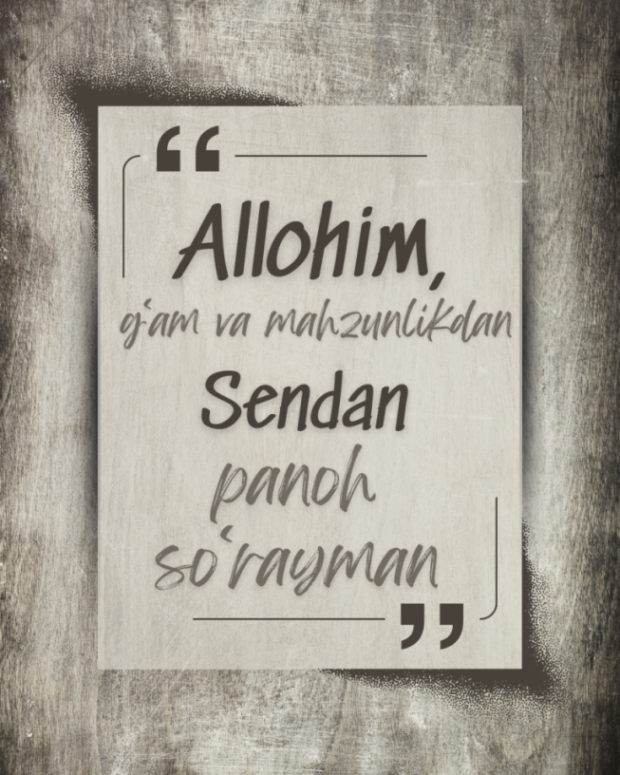 Allohim,
g‘am va mahzunlikdan
Sendan
panoh
so‘rayman